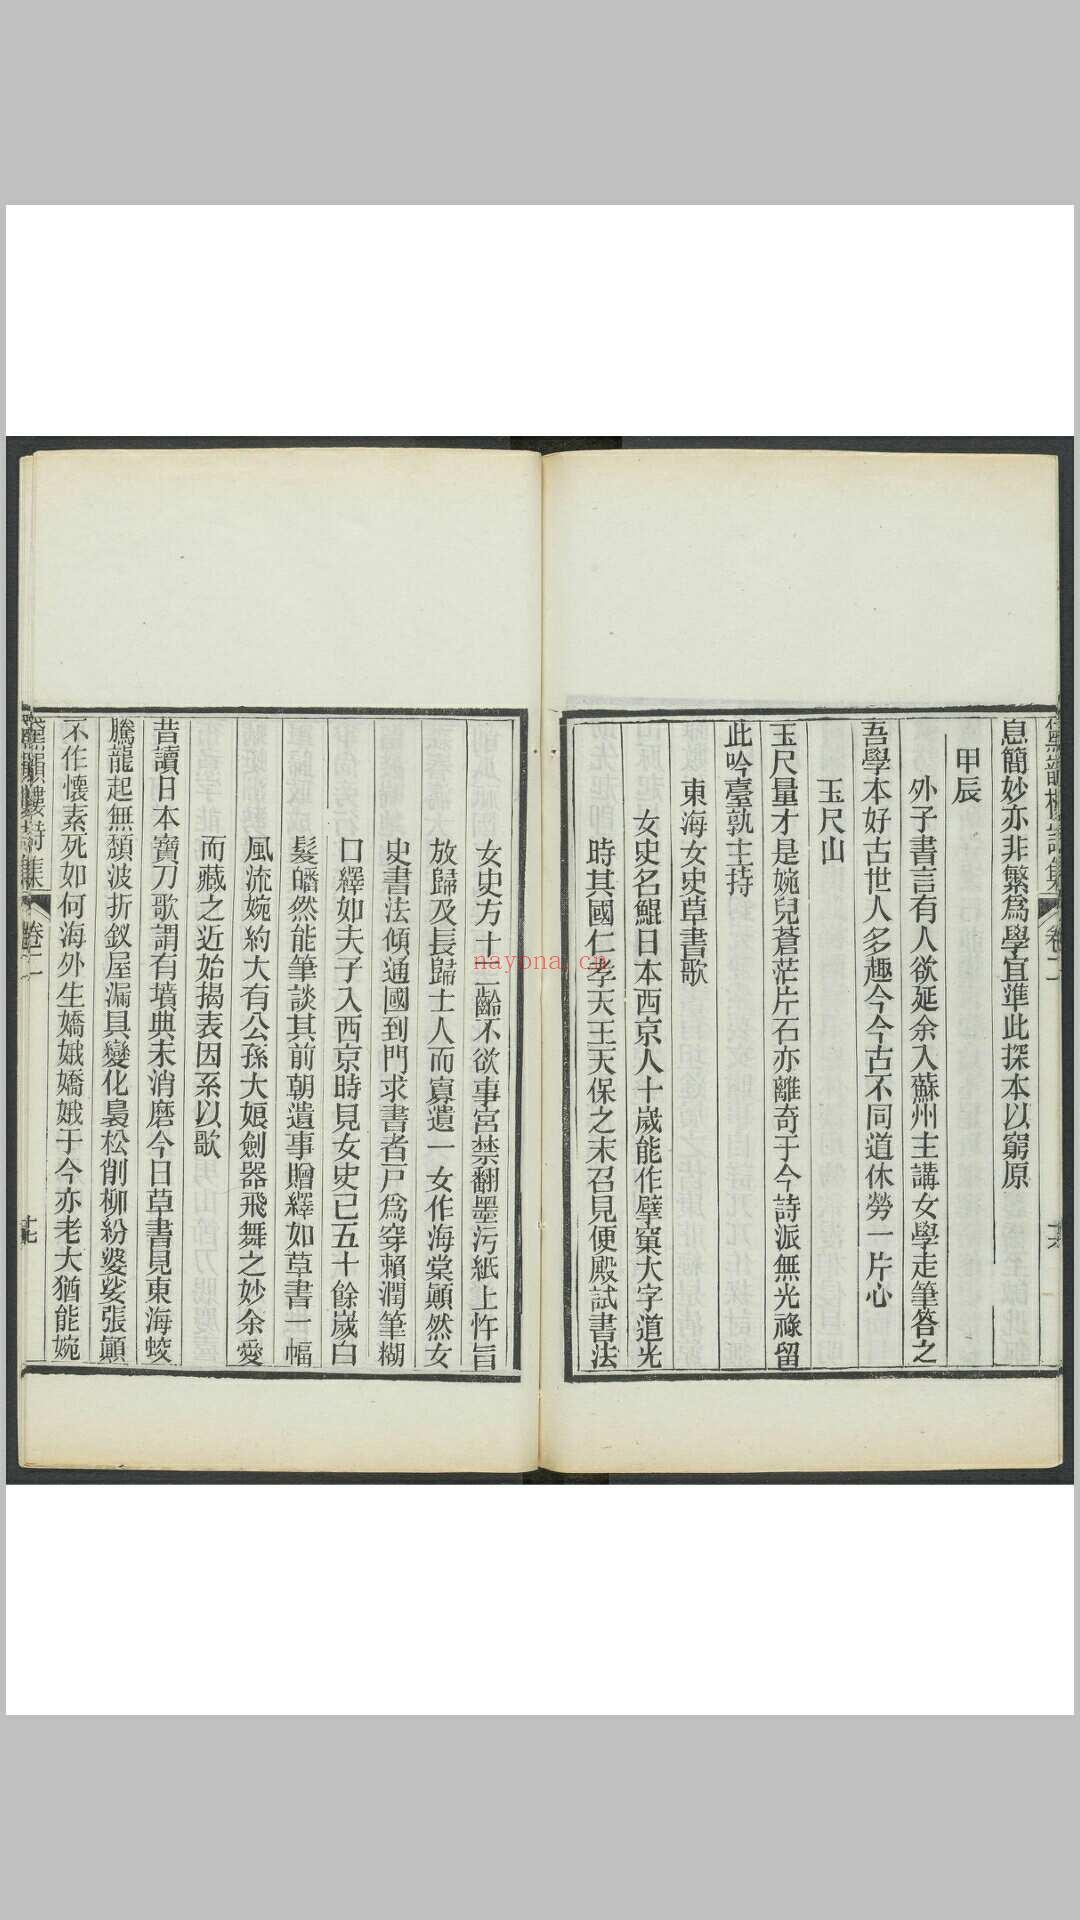 息簡妙亦非繁爲學宜準此探本以窮原
甲辰
外子書言有人欲延余入蘇州主講女學走筆答之
吾學本好古世人多趣今今古不同道休勞一片心
玉尺山
玉尺量才是婉兒蒼茫片石亦離奇于今詩派無光祿留
此吟臺孰主持
東海女史草書歌
女史名鯤日本西京人十歲能作擘窠大字道光
時其國仁孝天王天保之末召見便殿試書法
女史方十二齡不欲事宮禁翻墨污紙上忤旨
放歸及長歸士人而寡遺一女作海棠顚然女
史書法傾通國到門求書者戸爲穿賴潤筆糊
口繹如夫子入西京時見女史已五十餘歲白
髮皤然能筆談其前朝遺事贈繹如草書一幅
風流婉約大有公孫大娘劍器飛舞之妙余愛
而藏之近始揭表因系以歌
昔讀日本寶刀歌謂有墳典未消磨今日草書見東海蛟
騰龍起無頹波折釵屋漏具變化裊松削柳紛婆娑張顚
不作懷素死如何海外生嬌娥嬌娥于今亦老大猶能婉
卷二
十七
nayona.cn